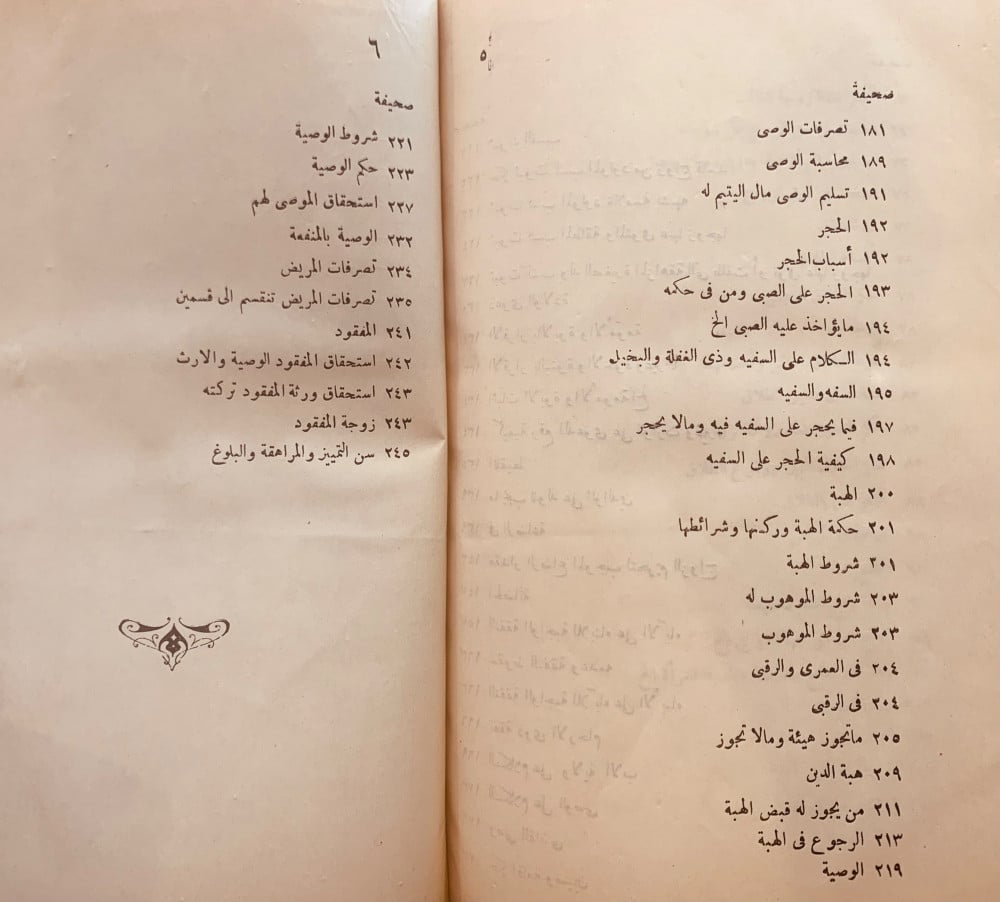 ٥
صحيفة
١٨١ تصرفات الوصى
١٨٩ محاسبة الوصى
١٩١ تسليم الوصى مال اليتيم له
١٩٢ الحجر
١٩٢ أسباب الحجر
١٩٣ الحجر على الصبى ومن فى حكمه
١٩٤ مايؤاخذ عليه الصبى الخ
١٩٤ الكلام على السفيه وذى الغفلة والبخيل
١٩٥ السفه والسفيه
١٩٧ فيما يحجر على السفيه فيه ومالا يحجر
١٩٨ كيفية الحجر على السفيه
٢٠٠ الهبة
٢٠١ حكمة الهبة وركنها وشرائطها
٢٠١ شروط الهبة
٢٠٣ شروط الموهوب له
٢٠٣ شروط الموهوب
٢٠٤ فى العمرى والرقبى
٢٠٤ فى الرقبى
٢٠٥ ماتجوز هيئة ومالا تجوز
٢٠٩ هبة الدين
٢١١ من يجوز له قبض الهبة
٢١٣ الرجوع فى الهبة
٢١٩ الوصية
٦
صحيفة
٢٢١ شروط الوصية
٢٢٣ حكم الوصية
٢٣٧ استحقاق الموصى لهم
٢٣٢ الوصية بالمنفعة
٢٣٤ تصرفات المريض
٢٣٥ تصرفات المريض تنقسم الى قسمين
٢٤١ المفقود
٢٤٢ استحقاق المفقود الوصية والارث
٢٤٣ استحقاق ورثة المفقود تركته
٢٤٣ زوجة المفقود
٢٤٥ سن التمييز والمراهقة والبلوغ